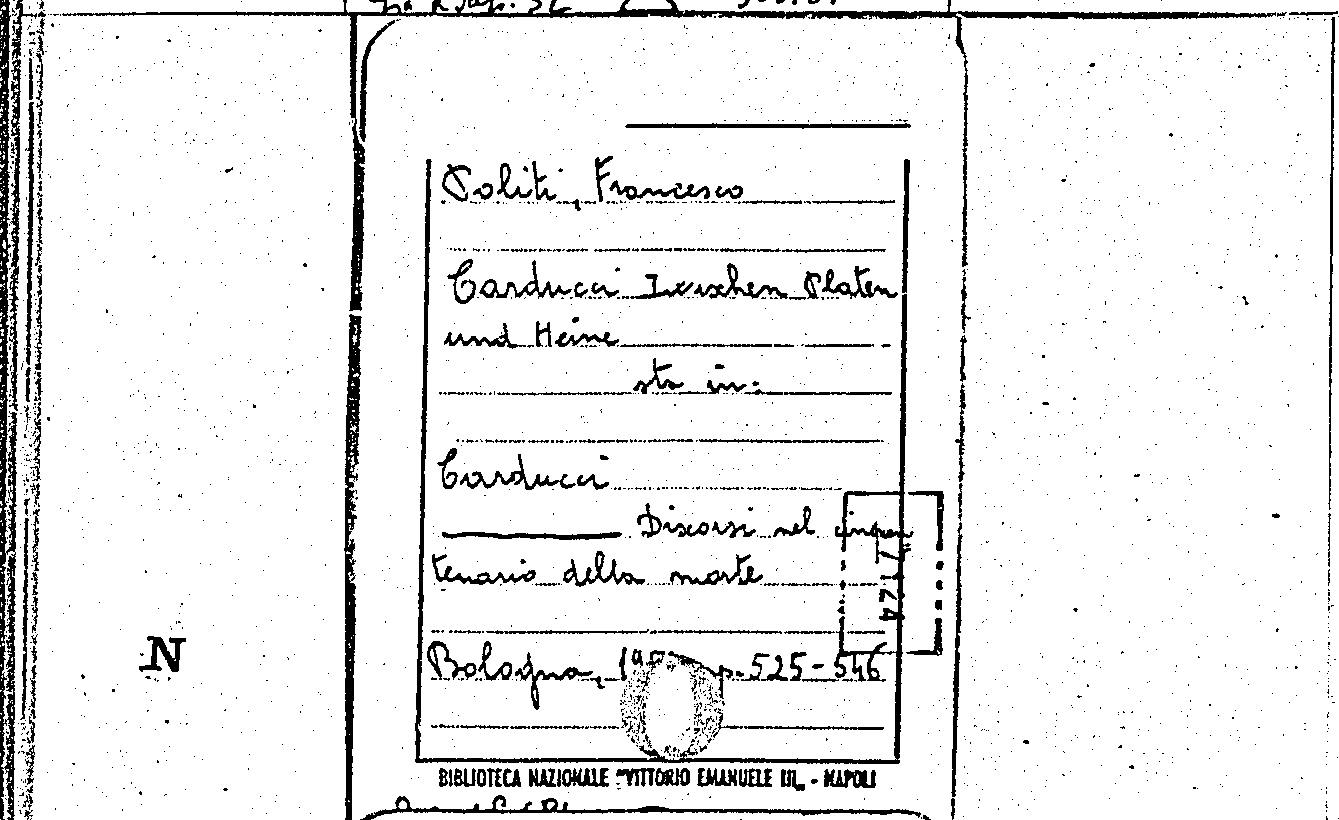 Politi, Francesco
Carducci Zwischen Platen
und Heine
sta in:
Carducci
Discorsi nel cinquan
tenario della morte
Bologna, pp. 525-546
N
BIBLIOTECA NAZIONALE "VITTORIO EMANUELE III" - NAPOLI